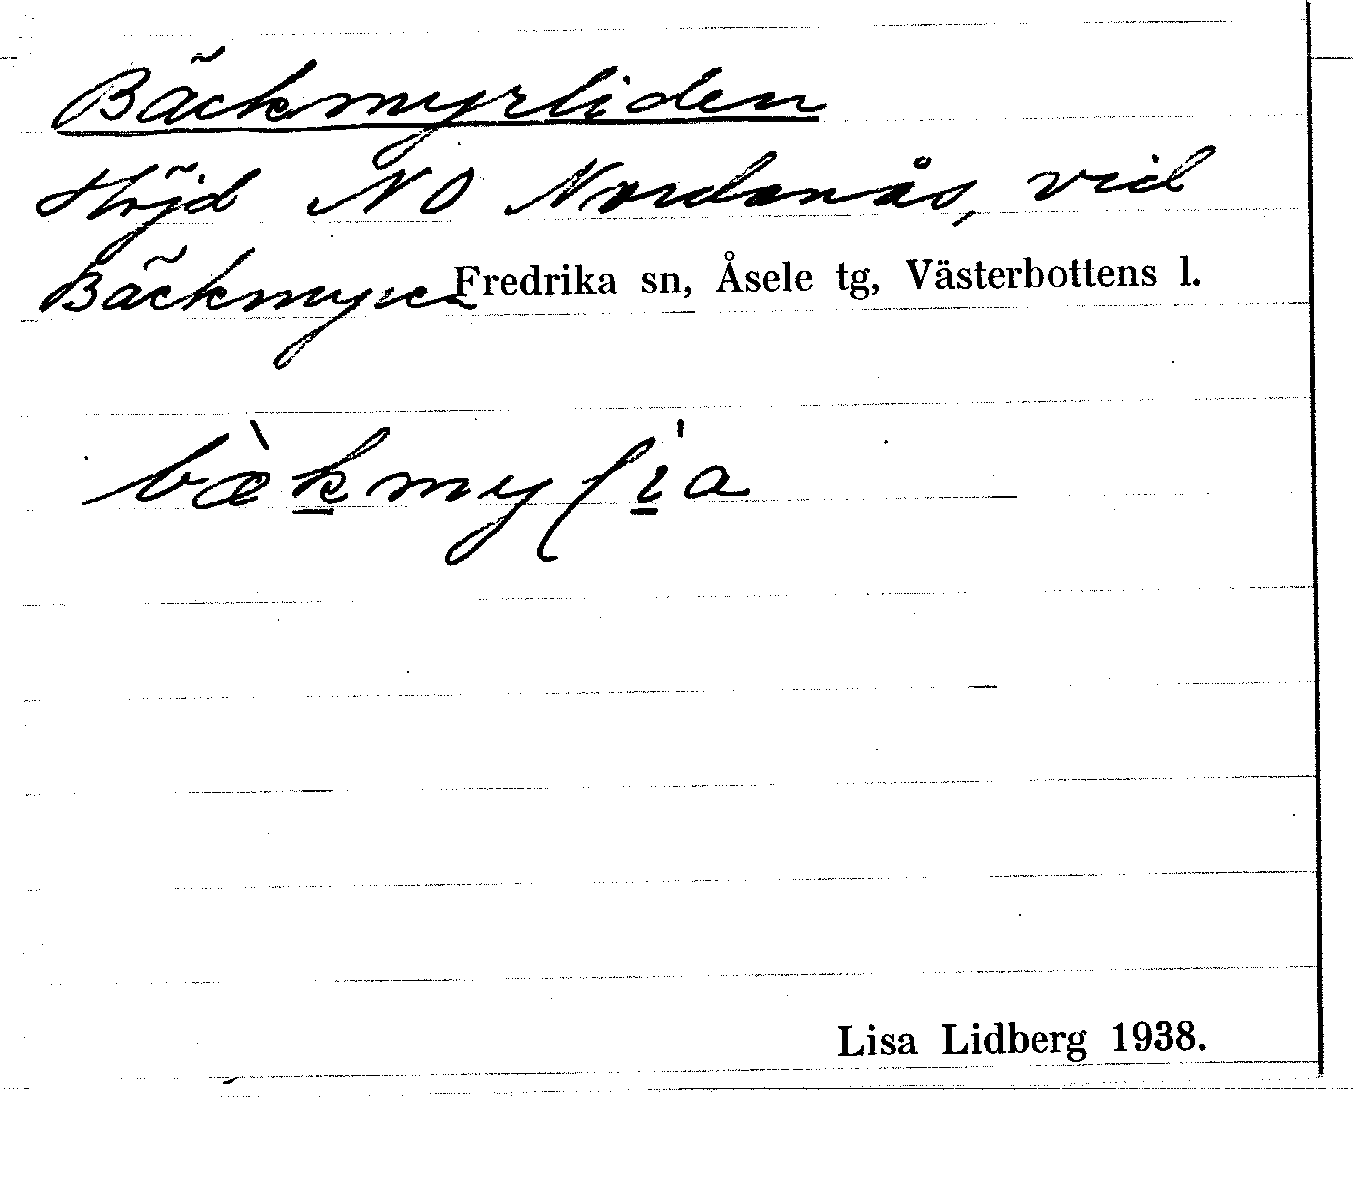 Bäckmyrliden
Höjd NO Nordanås, vid
Bäckmyren Fredrika sn, Åsele tg, Västerbottens l.
Lisa Lidberg 1938.